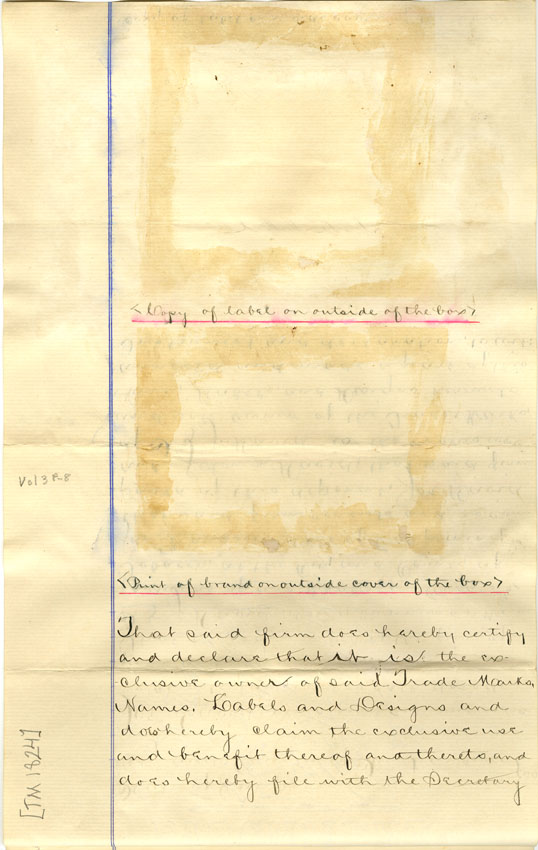 <Copy of label on outside of the box>
Vol 38-8
<Print of brand on outside cover of the box>
That said firm does hereby certify
and declare that it is the ex-
clusive owner of said Trade Marks,
Names, Labels and Designs and
does hereby claim the exclusive use
and benefit thereof and thereto, and
does hereby file with the Secretary
[TM 1824]